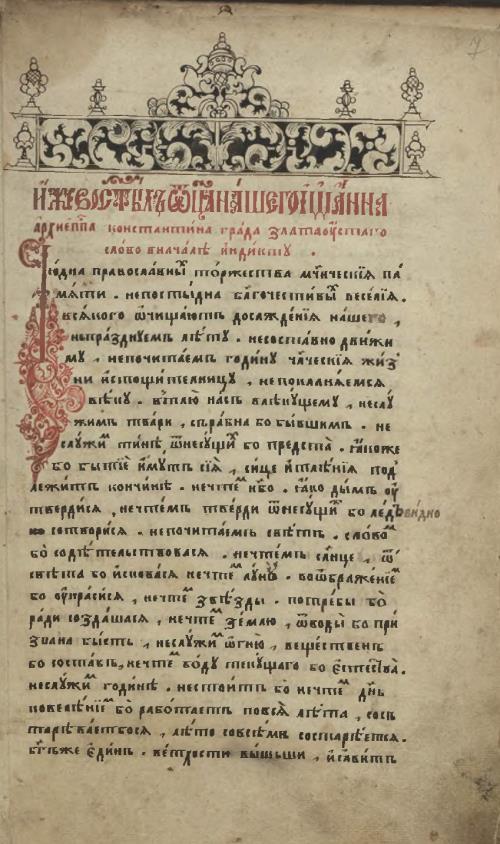 И҆́же во ст҃ы́хъ ѿц҃а̀ на́шего і҆ѡа́нна
архїеп҃па константи́на гра́да златаоу́стаго
сло́во внача́лѣ и҆нди́кту .
православны́ торжества мч҃ническїѧ па
мѧти . непосты́дна бл҃гочестивы весе́лїѧ .
всѧкого ѡ҆чищаютъ досажде́нїѧ нашего ,
нь празднуемъ лѣту . несоставно движи
му , непочитаемъ годину чл҃ческїѧ жиз
ни и҆стощителницу , непоклонѧемсѧ
вѣку . насъ влѣкущему , неслу
жимъ твари , бо бывшимъ . не
служи ти́нѣ бо предста̀ . ꙗ҆коже
бо бытїѐ и҆мутъ сїѧ̀ , сице и҆тлѣнїѧ под̾
лежитъ кончинѣ . нечте н҃бо . ꙗ҆ко дымъ оу҆
твердисѧ , нечтемъ тверди бо лед видно
сотворисѧ . непочитаемъ свѣтъ . слово
бо содѣтельствовасѧ . нечтемъ сл҃нце , ѿ
свѣта бо нечте луну̀ . воѡбраженїе
бо оу҆красисѧ , нечте ѕвѣзды . потребы бо̀
ради создашасѧ , нечте землю , ѿводы бо при
звана бысть , неслужи ѻ҆гню , вещественъ
бо составъ , нечте воду текущаго бо є҆стества̀ .
неслужи годинѣ . нестоитъ бо̀ нечте дн҃ь
повелѣнїе бо̀ работаетъ повсѧ̀ лѣта , сось
тарѣваетбосѧ , лѣто совсѣмъ состарѣетсѧ .
бг҃ъже є҆динъ . ветхости вышьши , и҆